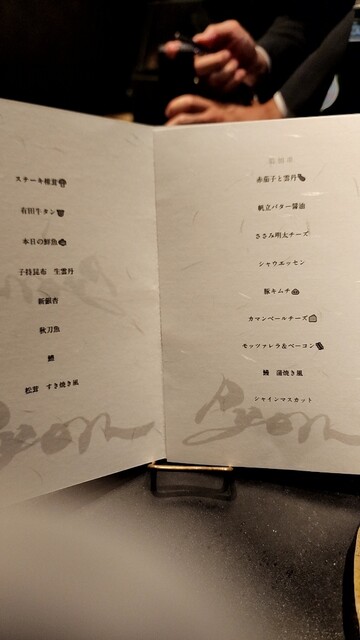 ステーキ椎茸
有田牛タン
本日の鮮魚
子持昆布　生雲丹
新銀杏
秋刀魚
鱧
松茸　すき焼き風
赤茄子と雲丹
帆立バター醤油
ささみ明太チーズ
シャウエッセン
豚キムチ
カマンベールチーズ
モッツァレラ&ベーコン
鰻　蒲焼き風
シャインマスカット